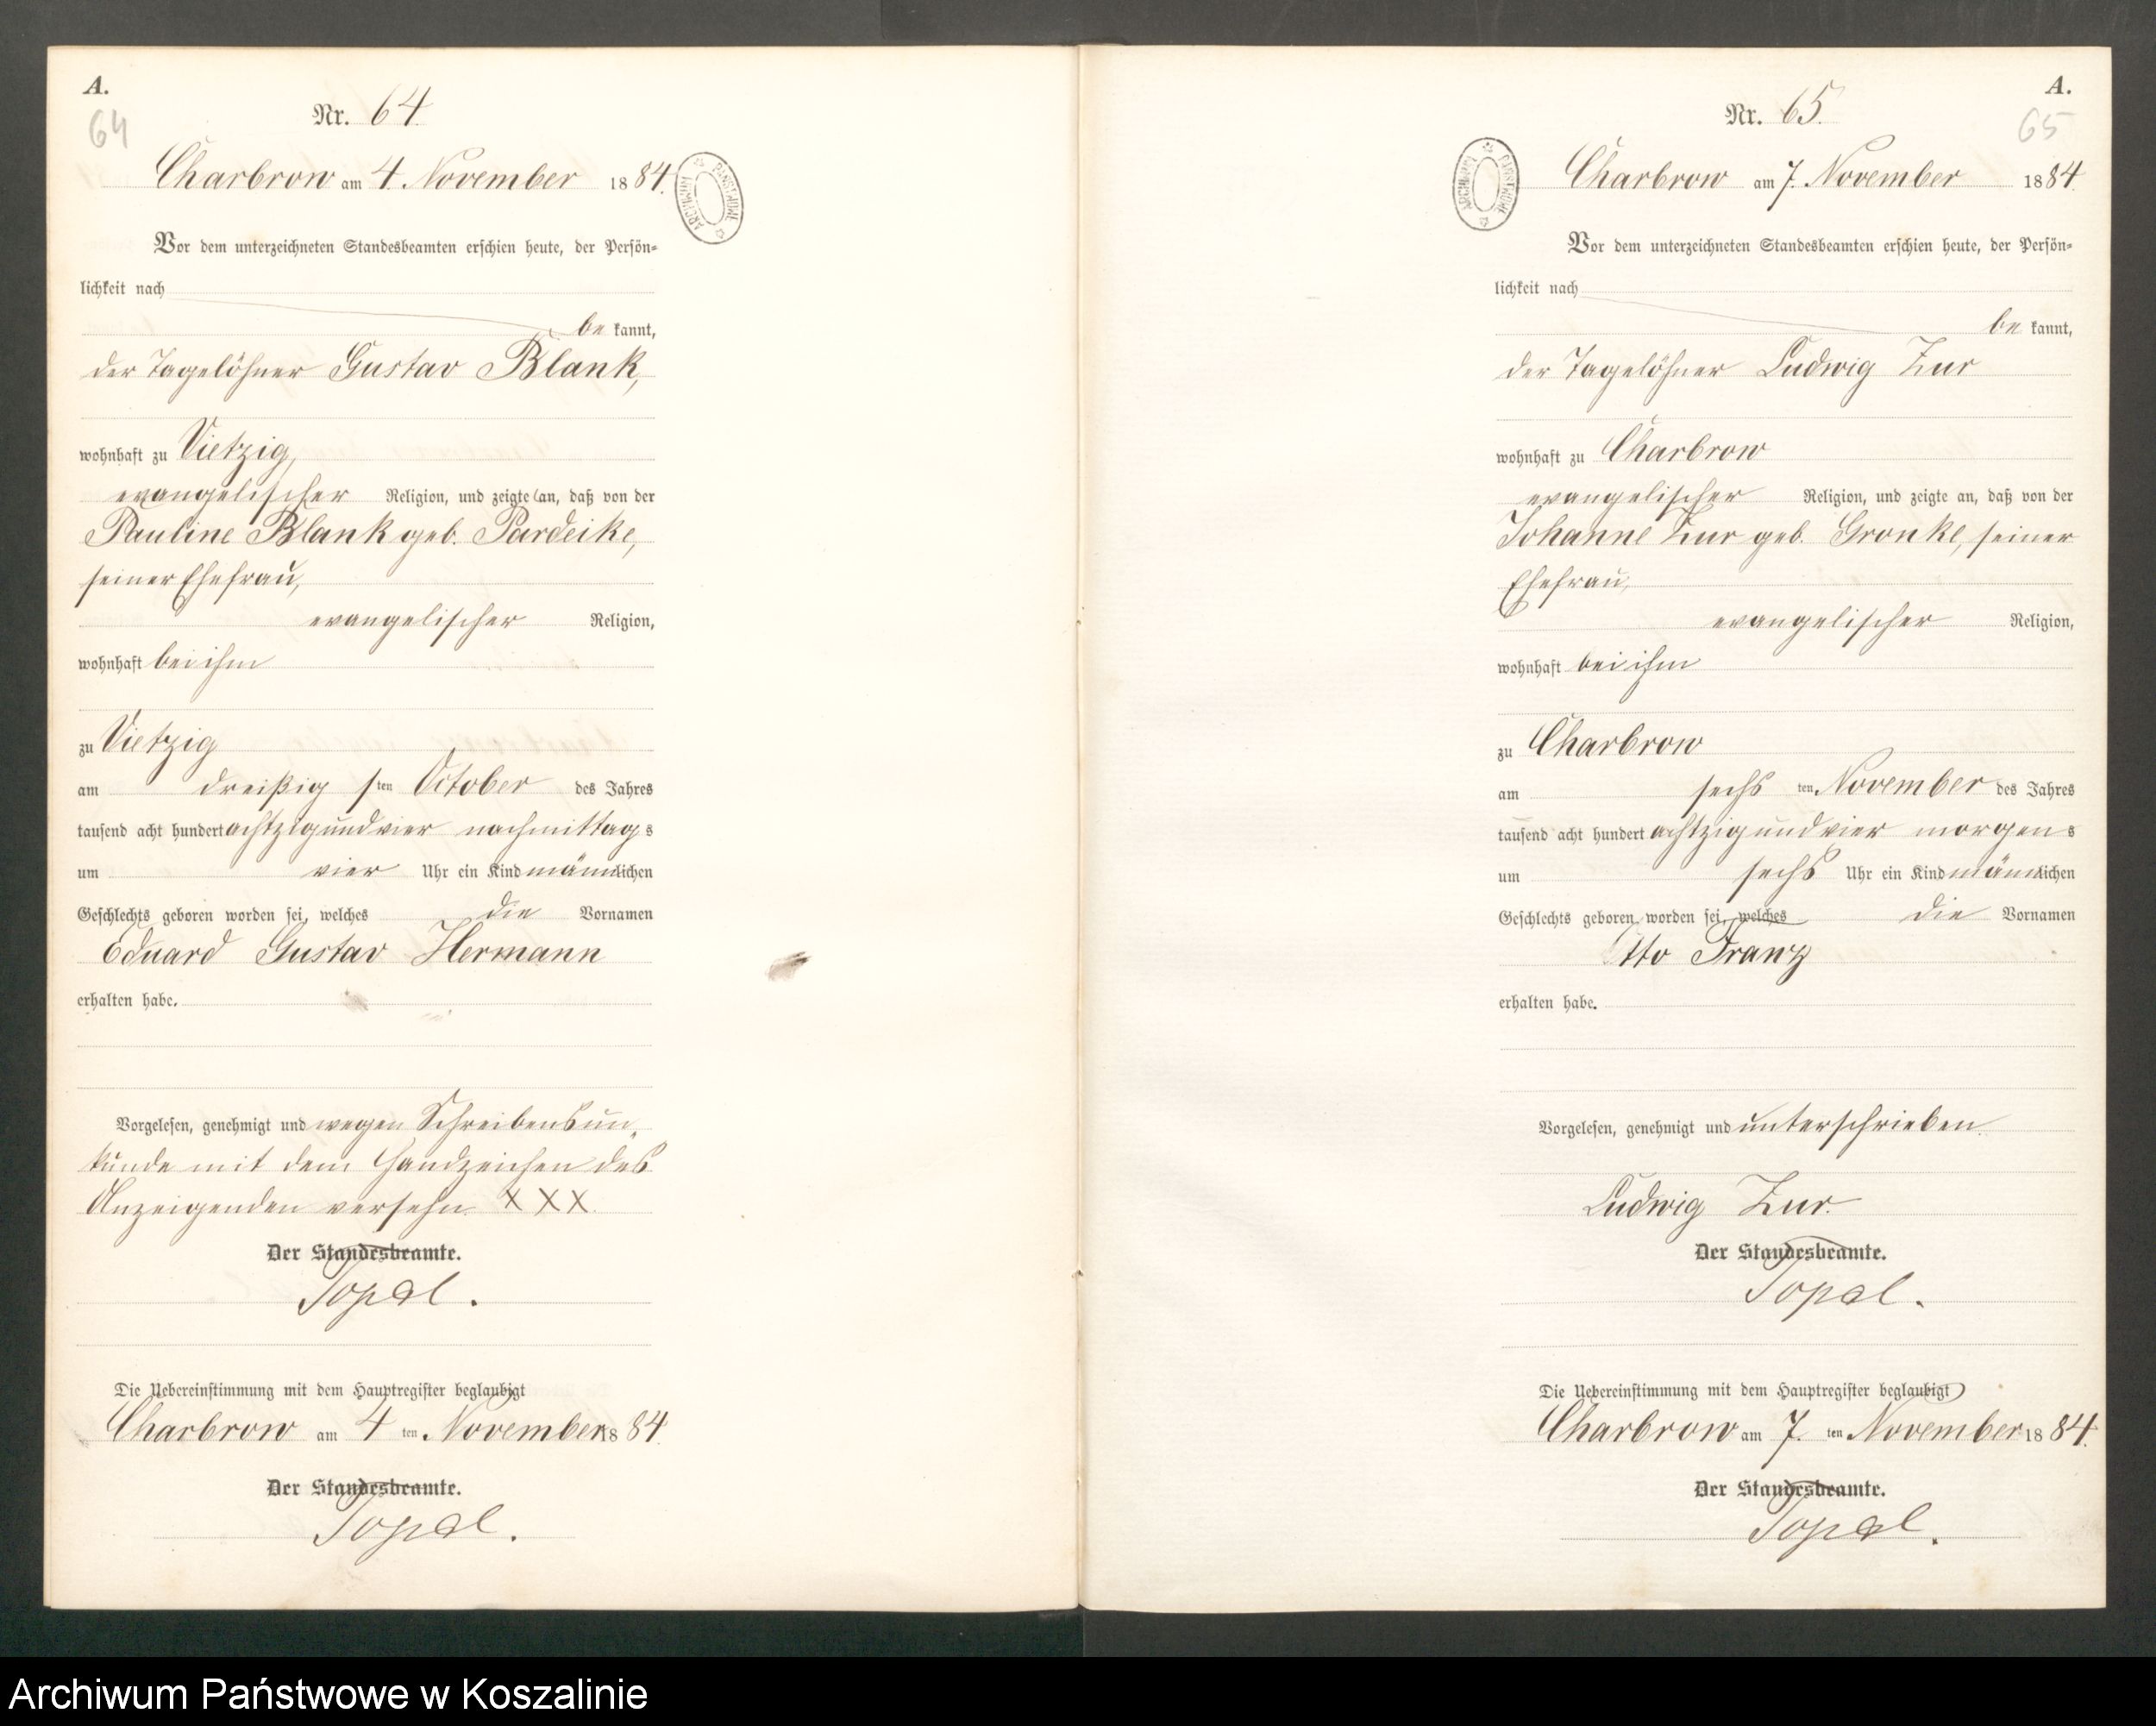 A.
64
Nr. 64
Charbrow am 4. November 1884.
ARCHIWUM PAŃSTWOWE
Vor dem unterzeichneten Standesbeamten erschien heute, der Persön=
lichkeit nach
be kannt,
der Tagelöhner Gustav Blank,
wohnhaft zu Vietzig,
evangelischer Religion, und zeigte an, daß von der
Pauline Blank geb. Pardeike,
seiner Ehefrau,
evangelischer Religion,
wohnhaft bei ihm
zu Vietzig
am dreißig sten October des Jahres
tausend acht hundert achtzig und vier nachmittags
um vier Uhr ein Kind männlichen
Geschlechts geboren worden sei, welches die Vornamen
Eduard Gustav Hermann
erhalten habe.
Vorgelesen, genehmigt und wegen Schreibensun-
kunde mit dem Handzeichen des
Anzeigenden versehn. XXX.
Der Standesbeamte.
Topel.
Die Uebereinstimmung mit dem Hauptregister beglaubigt
Charbrow am 4 ten November 1884.
Der Standesbeamte.
Topel.
A.
65
Nr. 65.
Charbrow am 7. November 1884.
ARCHIWUM PAŃSTWOWE
Vor dem unterzeichneten Standesbeamten erschien heute, der Persön=
lichkeit nach
be kannt,
der Tagelöhner Ludwig Zur
wohnhaft zu Charbrow
evangelischer Religion, und zeigte an, daß von der
Johanne Zur geb. Gronke, seiner
Ehefrau,
evangelischer Religion,
wohnhaft bei ihm
zu Charbrow
am sechs ten November des Jahres
tausend acht hundert achtzig und vier morgens
um sechs Uhr ein Kind männlichen
Geschlechts geboren worden sei, welches die Vornamen
Otto Franz
erhalten habe.
Vorgelesen, genehmigt und unterschrieben.
Ludwig Zur.
Der Standesbeamte.
Topel.
Die Uebereinstimmung mit dem Hauptregister beglaubigt
Charbrow am 7. ten November 1884.
Der Standesbeamte.
Topel.
Archiwum Państwowe w Koszalinie